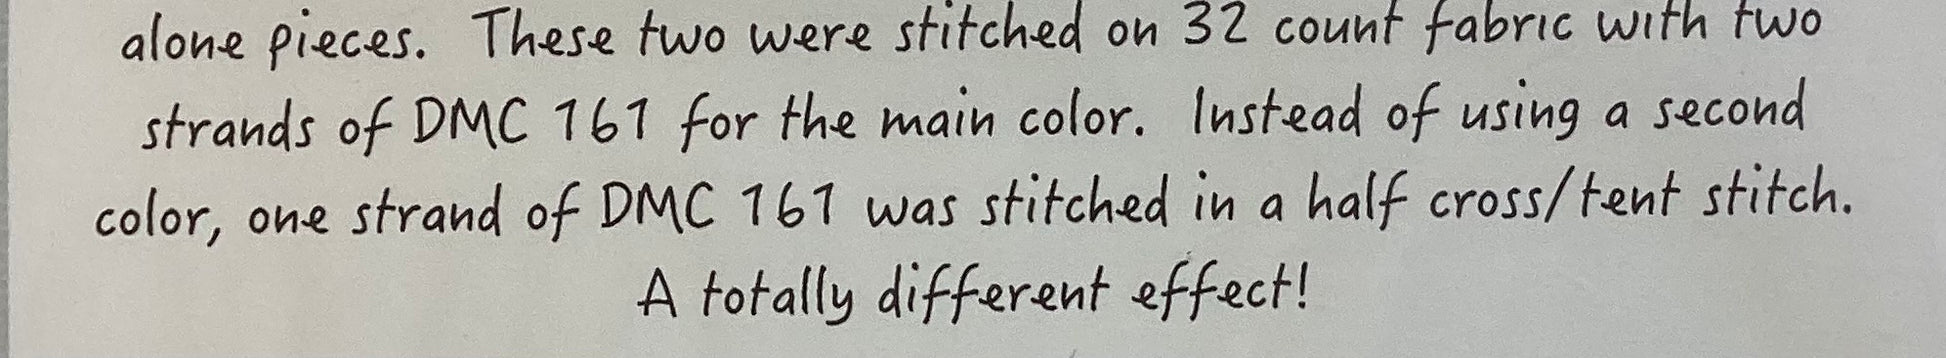 alone pieces. These two were stitched on 32 count fabric with two
strands of DMC 161 for the main color. Instead of using a second
color, one strand of DMC 161 was stitched in a half cross/tent stitch.
A totally different effect!